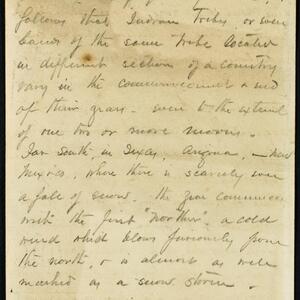 follows that Indian tribes, or even
bands of the same tribe located
in different section of a country
vary in the commencement & end
of their years - even to the extent
of one two or more moons.
Far South, in Texas, Arizona, - New
Mexico, where there is scarcely ever
a fall of snow. the year commences
with the first "norther" - a cold
wind which blows furiously from
the north, & is almost as well
marked as a snow storm.